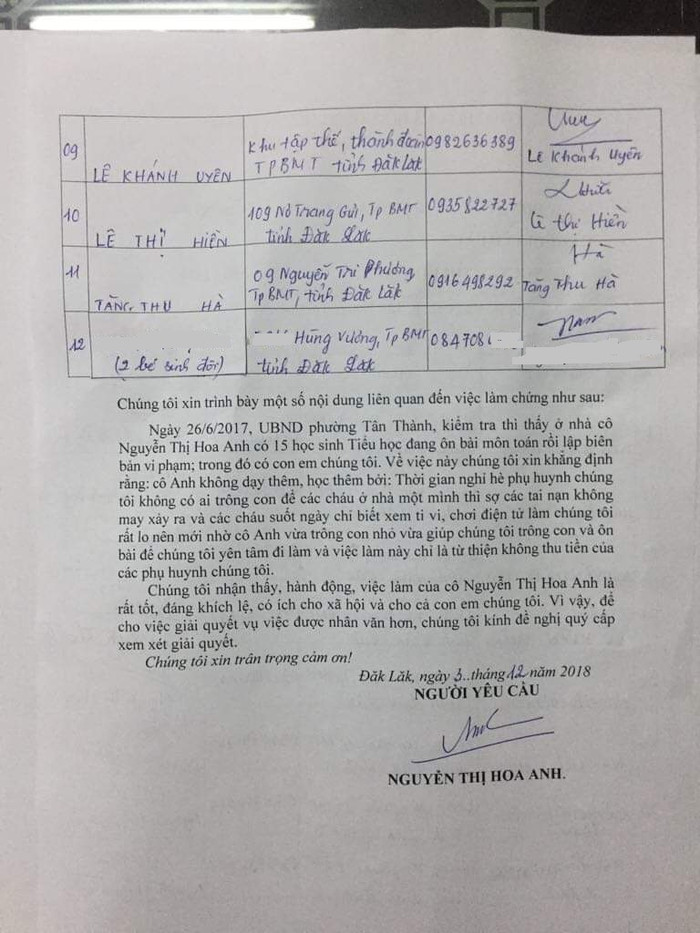 09 LÊ KHÁNH UYÊN Khu tập thể, thành đoàn 0982636389
TPBMT tỉnh Đăk Lăk Lê Khánh Uyên
10 LÊ THỊ HIỀN 109 Nơ Trang Gưh, Tp BMT 0935822727
tỉnh Đăk Lăk Lê Thị Hiền
11 TĂNG THU HÀ 09 Nguyễn Tri Phương, Hà
Tp BMT, tỉnh Đăk Lăk 0916498292 Tăng Thu Hà
12 (2 bé sinh đôi) Hùng Vương, Tp BMT 084708
tỉnh Đăk Lăk
Chúng tôi xin trình bày một số nội dung liên quan đến việc làm chứng như sau:
Ngày 26/6/2017, UBND phường Tân Thành, kiểm tra thì thấy ở nhà cô
Nguyễn Thị Hoa Anh có 15 học sinh Tiểu học đang ôn bài môn toán rồi lập biên
bản vi phạm; trong đó có con em chúng tôi. Về việc này chúng tôi xin khẳng định
rằng: cô Anh không dạy thêm, học thêm bởi: Thời gian nghỉ hè phụ huynh chúng
tôi không có ai trông con để các cháu ở nhà một mình thì sợ các tai nạn không
may xảy ra và các cháu suốt ngày chỉ biết xem ti vi, chơi điện tử làm chúng tôi
rất lo nên mới nhờ cô Anh vừa trông con nhỏ vừa giúp chúng tôi trông con và ôn
bài để chúng tôi yên tâm đi làm và việc làm này chỉ là từ thiện không thu tiền của
các phụ huynh chúng tôi.
Chúng tôi nhận thấy, hành động, việc làm của cô Nguyễn Thị Hoa Anh là
rất tốt, đáng khích lệ, có ích cho xã hội và cho cả con em chúng tôi. Vì vậy, để
cho việc giải quyết vụ việc được nhân văn hơn, chúng tôi kính đề nghị quý cấp
xem xét giải quyết.
Chúng tôi xin trân trọng cảm ơn!
Đăk Lăk, ngày 3..tháng 12 năm 2018
NGƯỜI YÊU CẦU
NGUYỄN THỊ HOA ANH.